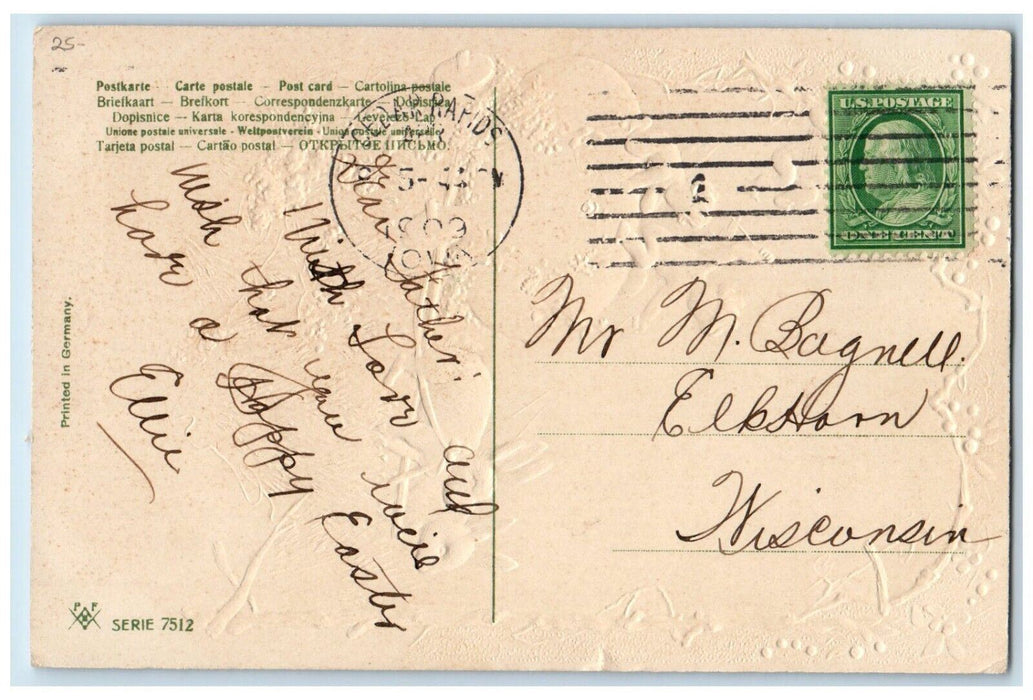 25-
Postkarte – Carte postale – Post card – Cartolina postale
Briefkaart – Brefkort – Correspondenzkarte – Dopisnica
Dopisnice – Karta korespondencyjna – Levelező-Lap
Unione postale universale - Weltpostverein - Union postale universelle
Tarjeta postal – Cartão postal – ОТКРЫТОЕ ПИСЬМО.
CEDAR RAPIDS
1909
IOWA
U.S. POSTAGE
ONE CENT
Dear Father.
With Love and
Wish that you will
have a Happy Easter
Ellie
Mr M. Bagnell.
Elkhorn
Wisconsin
Printed in Germany.
P F
SERIE 7512